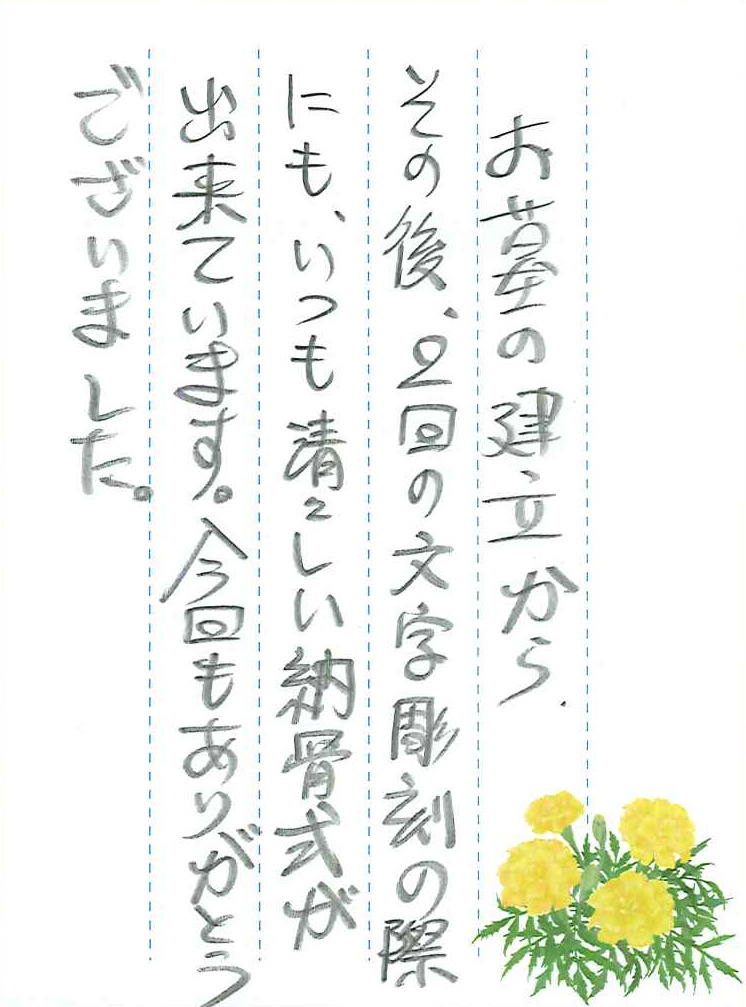 お墓の建立から、
その後、2回の文字彫刻の際
にも、いつも清々しい納骨式が
出来ています。今回もありがとう
ございました。